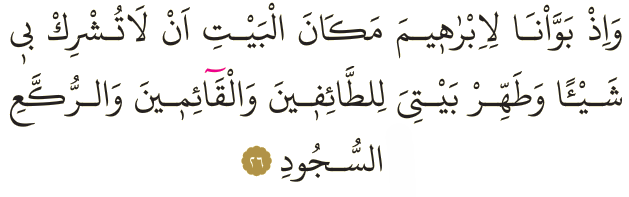 وَاِذْ بَوَّاْنَا لِاِبْرٰه۪يمَ مَكَانَ الْبَيْتِ اَنْ لَاتُشْرِكْ ب۪ي
شَيْـًٔا وَطَهِّرْ بَيْتِيَ لِلطَّٓائِف۪ينَ وَالْقَٓائِم۪ينَ وَالرُّكَّعِ
السُّجُودِ ﴿٢٦﴾